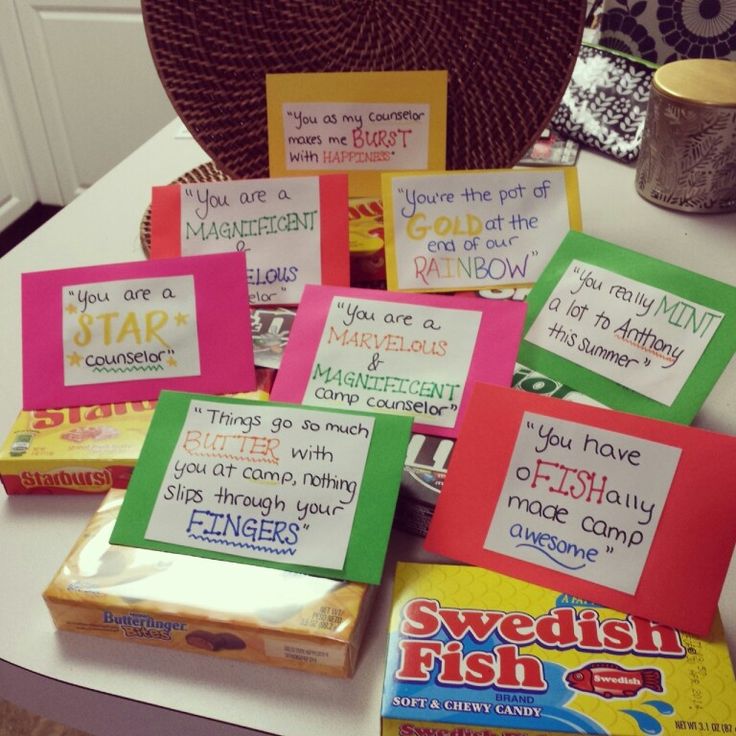 "You as my counselor
makes me BURST
with HAPPINESS"
"You are a
MAGNIFICENT
&
counselor"
"You're the pot of
GOLD at the
end of our
RAINBOW"
"You are a
STAR
counselor"
"You are a
MARVELOUS
&
MAGNIFICENT
camp counselor"
"You really MINT
a lot to Anthony
this summer"
"Things go so much
BUTTER with
you at camp, nothing
slips through your
FINGERS"
"You have
oFISHally
made camp
awesome"
Starburst
Starburst
Butterfinger
Bites
NET WT
Swedish
Fish
BRAND
SOFT & CHEWY CANDY
Swedish
NET WT 3.1 OZ